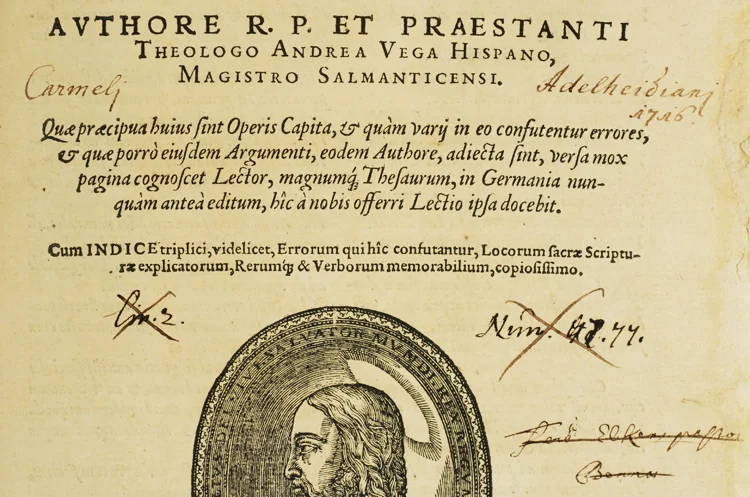 AVTHORE R. P. ET PRAESTANTI
THEOLOGO ANDREA VEGA HISPANO,
MAGISTRO SALMANTICENSI.
Carmeli
Adelheidiani
1716
Quæ præcipua huius ſint Operis Capita, & quàm varij in eo confutentur errores,
& quæ porrò eiuſdem Argumenti, eodem Authore, adiecta ſint, verſa mox
pagina cognoſcet Lector, magnumq́; Theſaurum, in Germania nun-
quàm anteà editum, hîc à nobis offerri Lectio ipſa docebit.
Cum INDICE triplici, videlicet, Errorum qui hîc confutantur, Locorum ſacræ Scriptu-
ræ explicatorum, Rerumq́; & Verborum memorabilium, copioſiſsimo.
Lin. 2.
Num. 77.
SALVATOR MVNDI REX